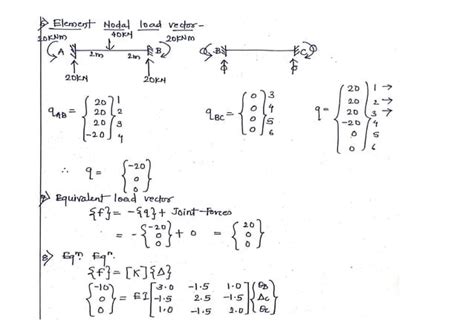 Element Nodal load vector-
20kNm 40kN 20kNm
A 2m 2m B B C
20kN 20kN
qAB = { 20 20 20 -20 } 1 2 3 4
qBC = { 0 0 0 0 } 3 4 5 6
q = { 20 20 20 -20 0 0 } 1 → 2 → 3 → 4 5 6
∴ q = { -20 0 0 }
7) Equivalent load vector
{f} = -{q} + Joint-Forces
= -{ -20 0 0 } + 0 = { 20 0 0 }
8) Eqn. Eqn.
{f} = [K]{Δ}
{ -10 0 0 } = EI [ 3.0 -1.5 1.0 -1.5 2.5 -1.5 1.0 -1.5 2.0 ] { θB Δc θc }